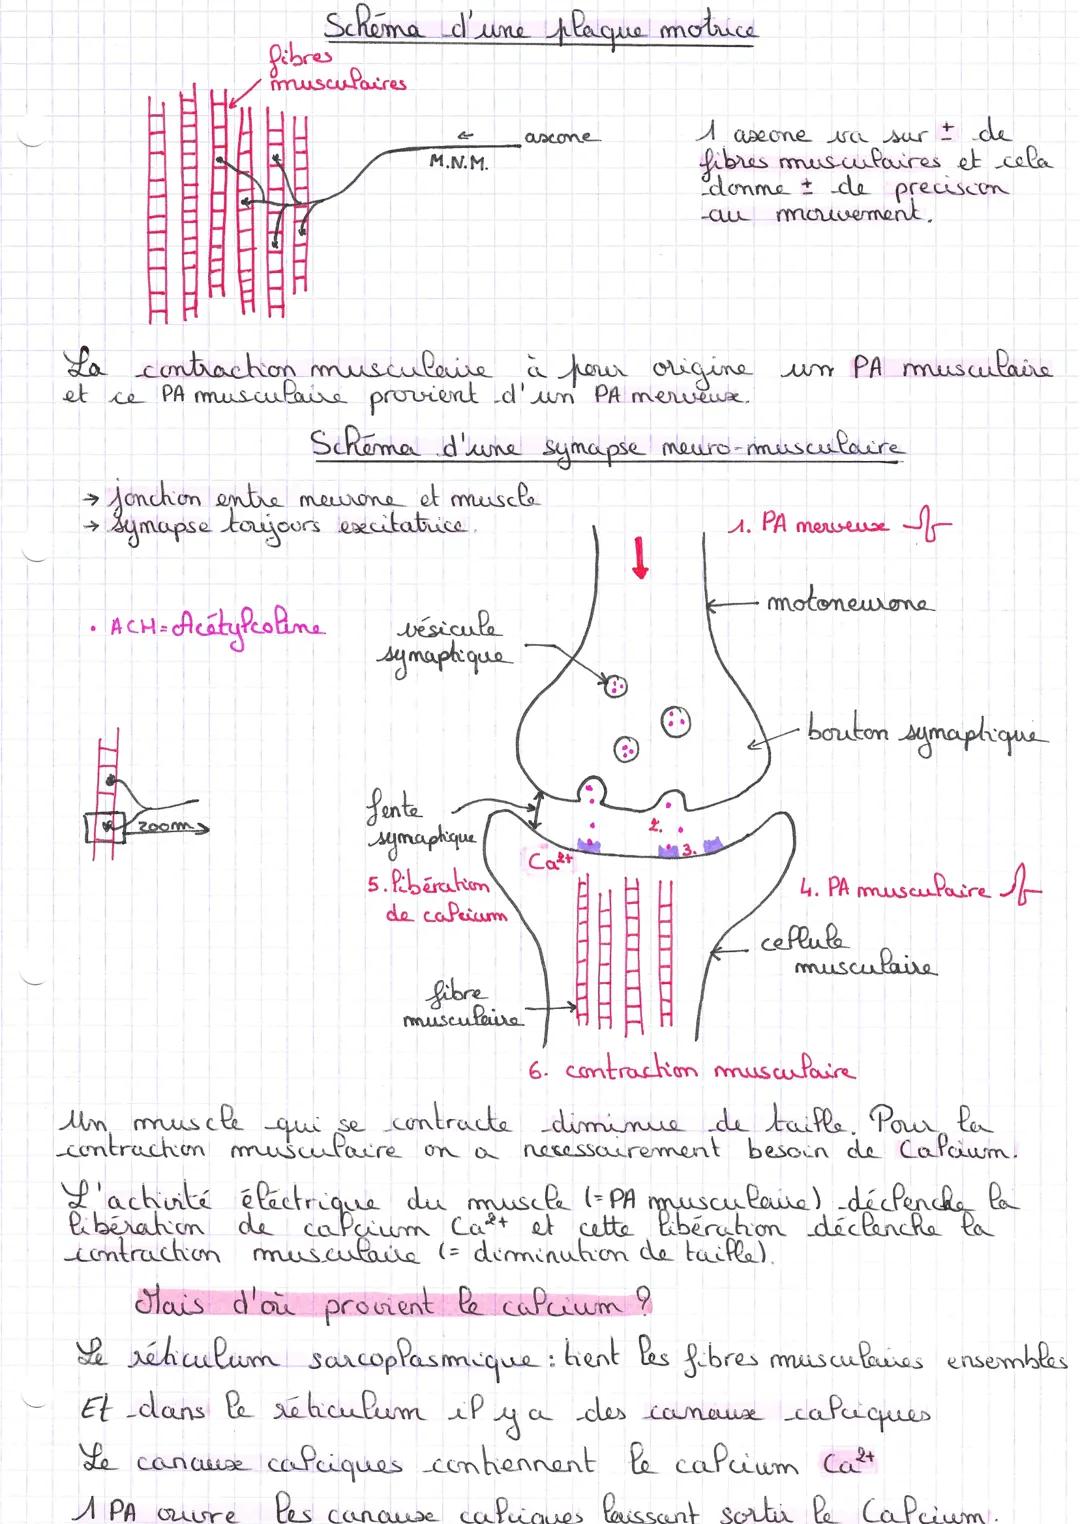 Schéma d'une plaque motrice
fibres
musculaires
← axone
M.N.M.
1 axone va sur ± de
fibres musculaires et cela
donne ± de precision
au mouvement.
La contraction musculaire à pour origine un PA musculaire
et ce PA musculaire provient d'un PA nerveux.
Schéma d'une synapse neuro-musculaire
→ jonction entre neurone et muscle
→ synapse toujours excitatrice.
1. PA nerveux
motoneurone
• ACH = Acétylcoline
vésicule
synaptique
bouton synaptique
zoom
fente
synaptique
2.
3.
Ca²⁺
5. libération
de calcium
4. PA musculaire
cellule
musculaire
fibre
musculaire
6. contraction musculaire
Un muscle qui se contracte diminue de taille. Pour la
contraction musculaire on a necessairement besoin de Calcium.
L'activité éléctrique du muscle (= PA musculaire) déclenche la
libération de calcium Ca²⁺ et cette libération déclenche la
contraction musculaire (= dimminution de taille).
Mais d'où provient le calcium ?
Le réticulum sarcoplasmique : tient les fibres musculaires ensembles
Et dans le réticulum il y a des canaux calciques
Le canaux calciques contiennent le calcium Ca²⁺
1 PA ouvre les canaux calciques laissant sortir le Calcium.